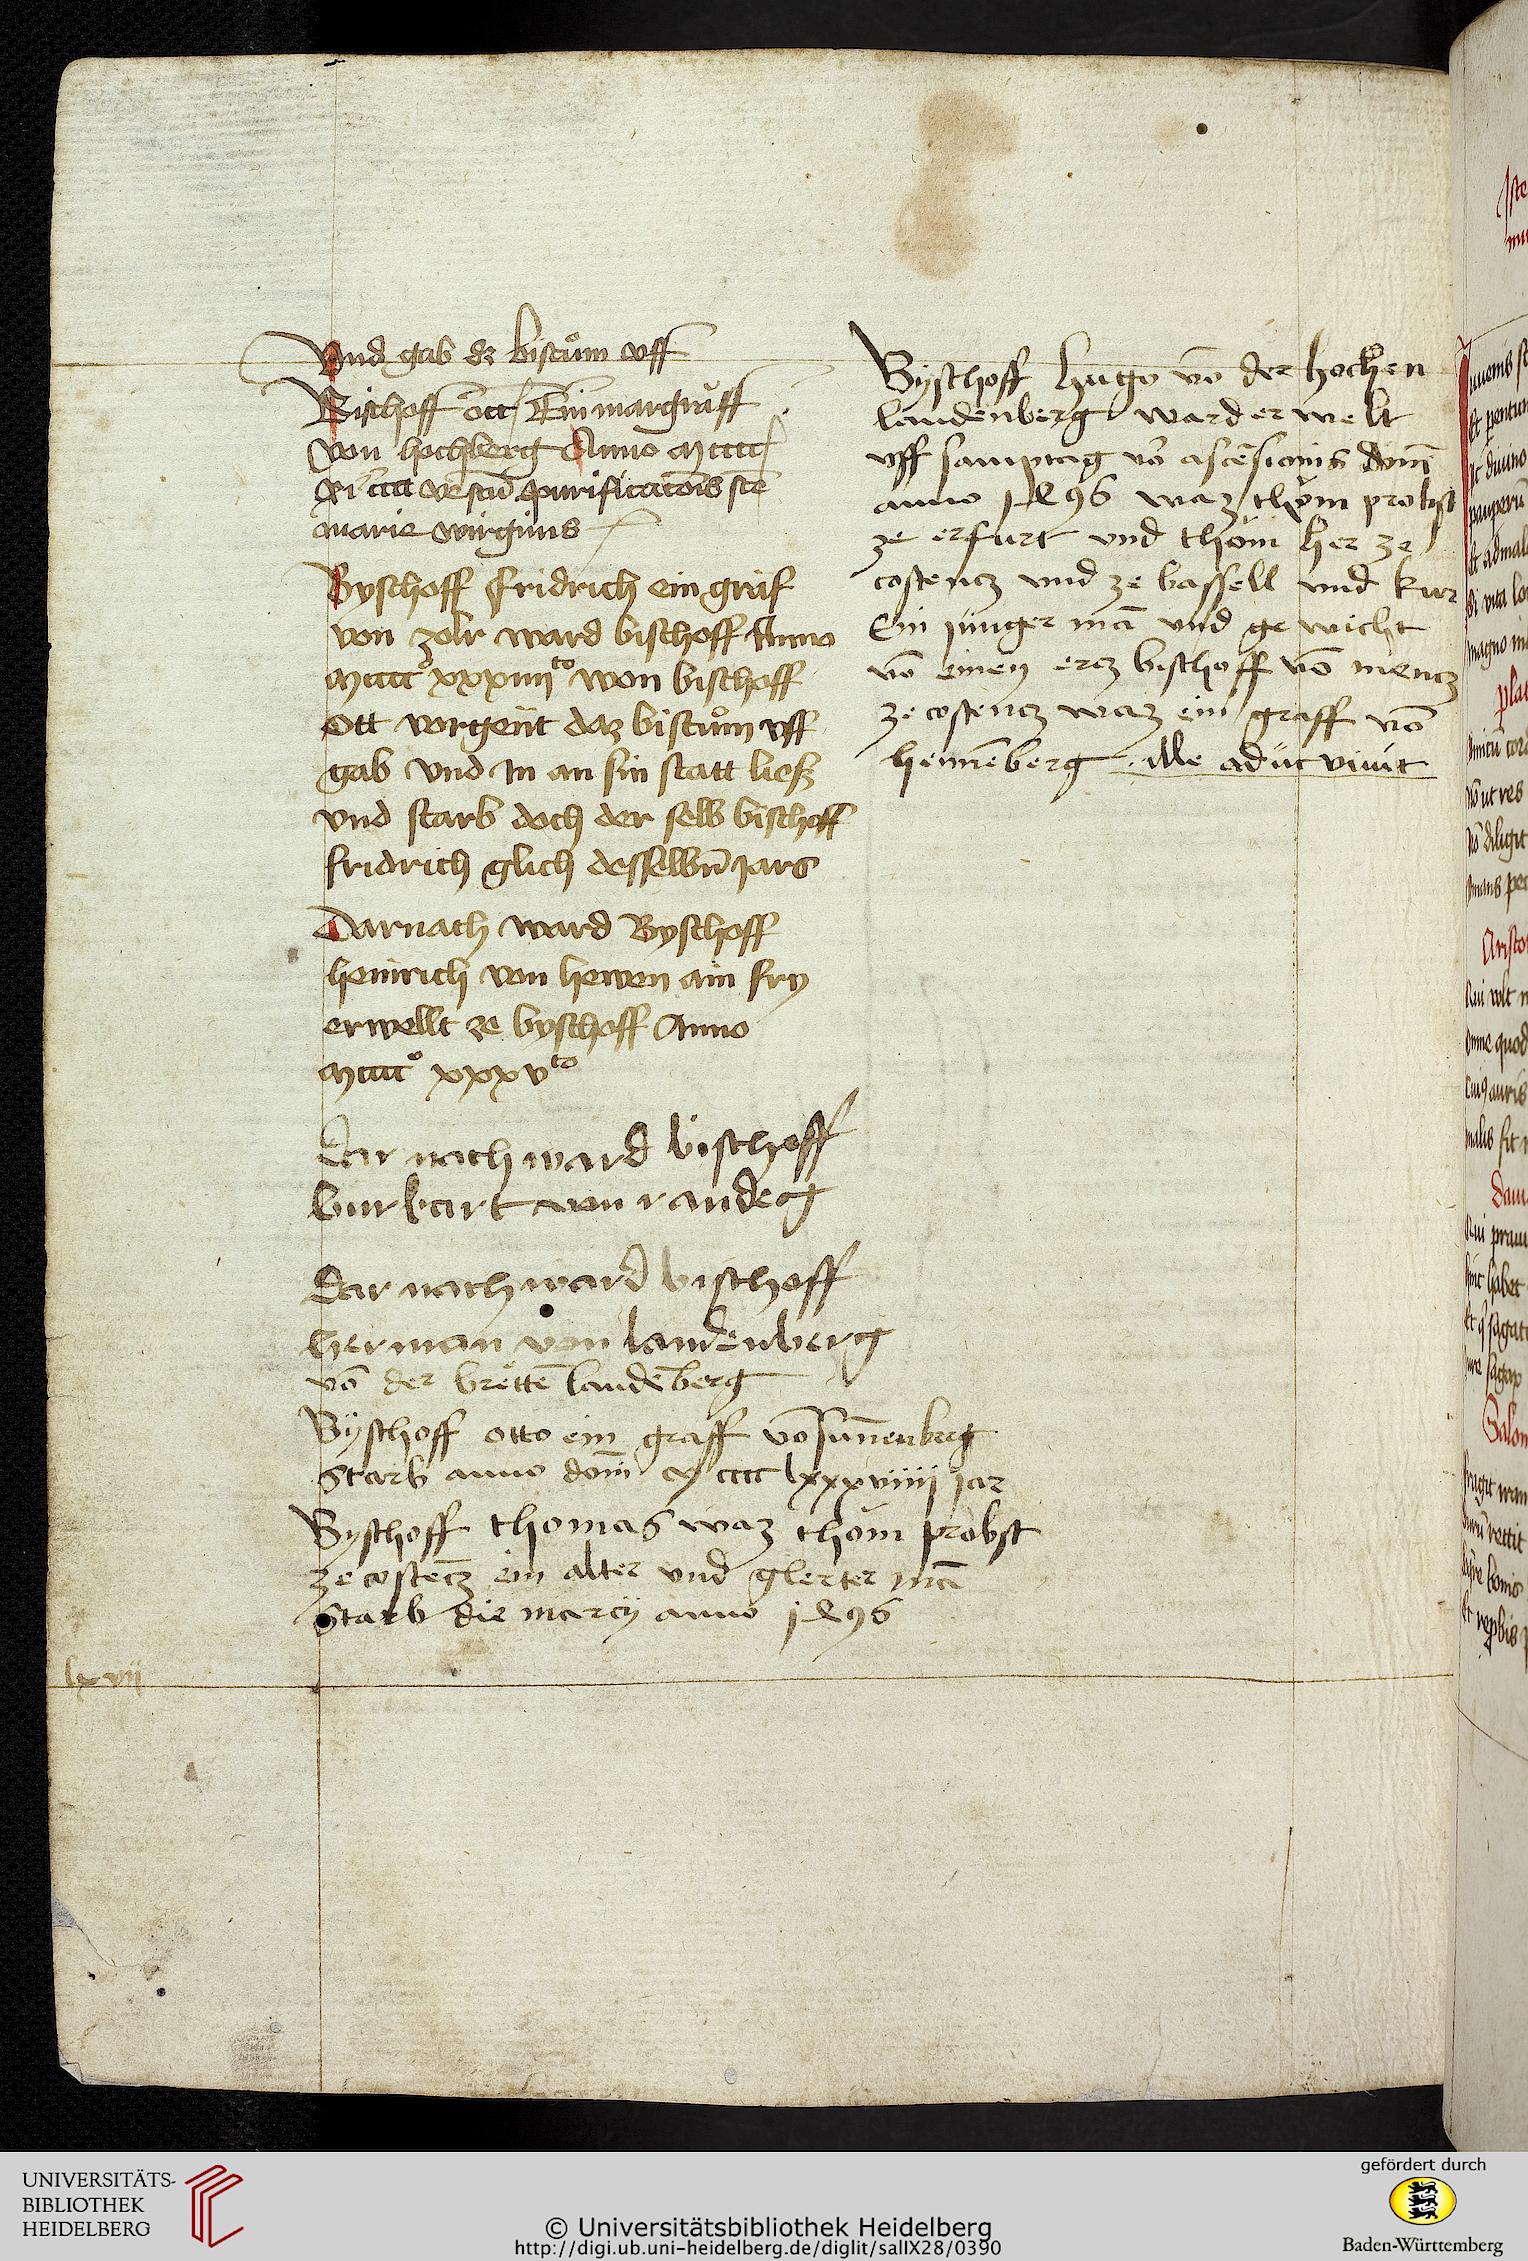 Vnd gab dz bistům vff
Bischoff ott Ein margraff
von hochberg Anno mcccc
xi cccc purificacōis scē
marie virginis
Byschoff fridrich ein graf
von zolr ward bischoff Anno
mcccc° xxxiiij to won bischoff
ott vorgent daz bistům vff
gab vnd In an sin statt liesz
vnd starb doch der selb bischoff
fridrich glich desselbn̄ jars
Darnach ward Byschoff
heinrich von hewen ain fry
erwellt ze byschoff Anno
mcccc° xxxv to
dar nach ward bischoff
burkart von randeg
dar nach ward bischoff
herman von landenberg
vō der brettē landēberg
Byschoff otto ein graff vō sun̄enberg
Starb anno domī m cccc lxxxviiij jar
Byschoff thomas waz thöm probst
ze costēcz ein alter vnd glerter mā
Starb die marcij anno 1496
Byschoff hugo vō der hochen
landenberg ward er welt
vff samptag vō ascēsionis domī
anno 1496 waz thöm probst
ze erfurt vnd thöm her ze
costencz vnd ze bassell vnd kur
Ein junger mā vnd ge wicht
vō einen ercz bischoff vō mencz
ze costencz waz ein graff vō
hennēberg. ille aduc viuit
lxvij
UNIVERSITÄTS-
BIBLIOTHEK
HEIDELBERG
© Universitätsbibliothek Heidelberg
http://digi.ub.uni-heidelberg.de/diglit/salIX28/0390
gefördert durch
Baden-Württemberg